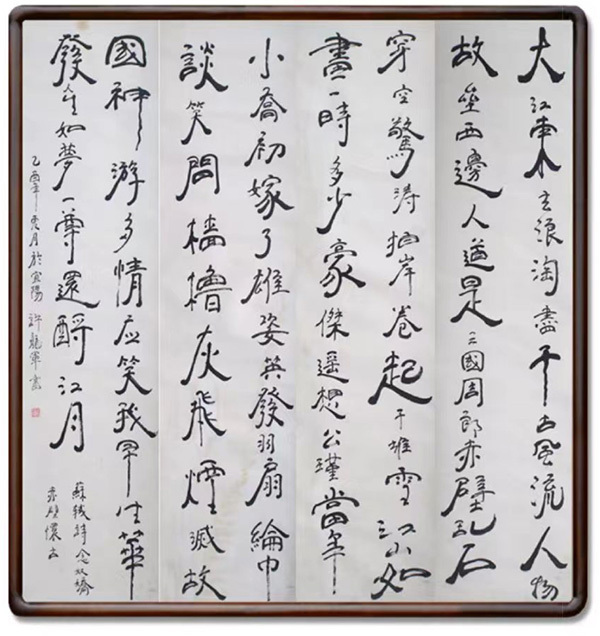 大江東去浪淘盡千古風流人物
故壘西邊人道是三國周郎赤壁乱石
穿空驚涛拍岸卷起千堆雪江山如
畫一時多少豪傑遥想公瑾當年
小喬初嫁了雄姿英發羽扇綸巾
談笑間檣櫓灰飛煙滅故
國神游多情应笑我早生華
發人生如夢一尊還酹江月
蘇軾詩念奴嬌
赤壁懷古
乙酉年月於宜陽許龍軍書